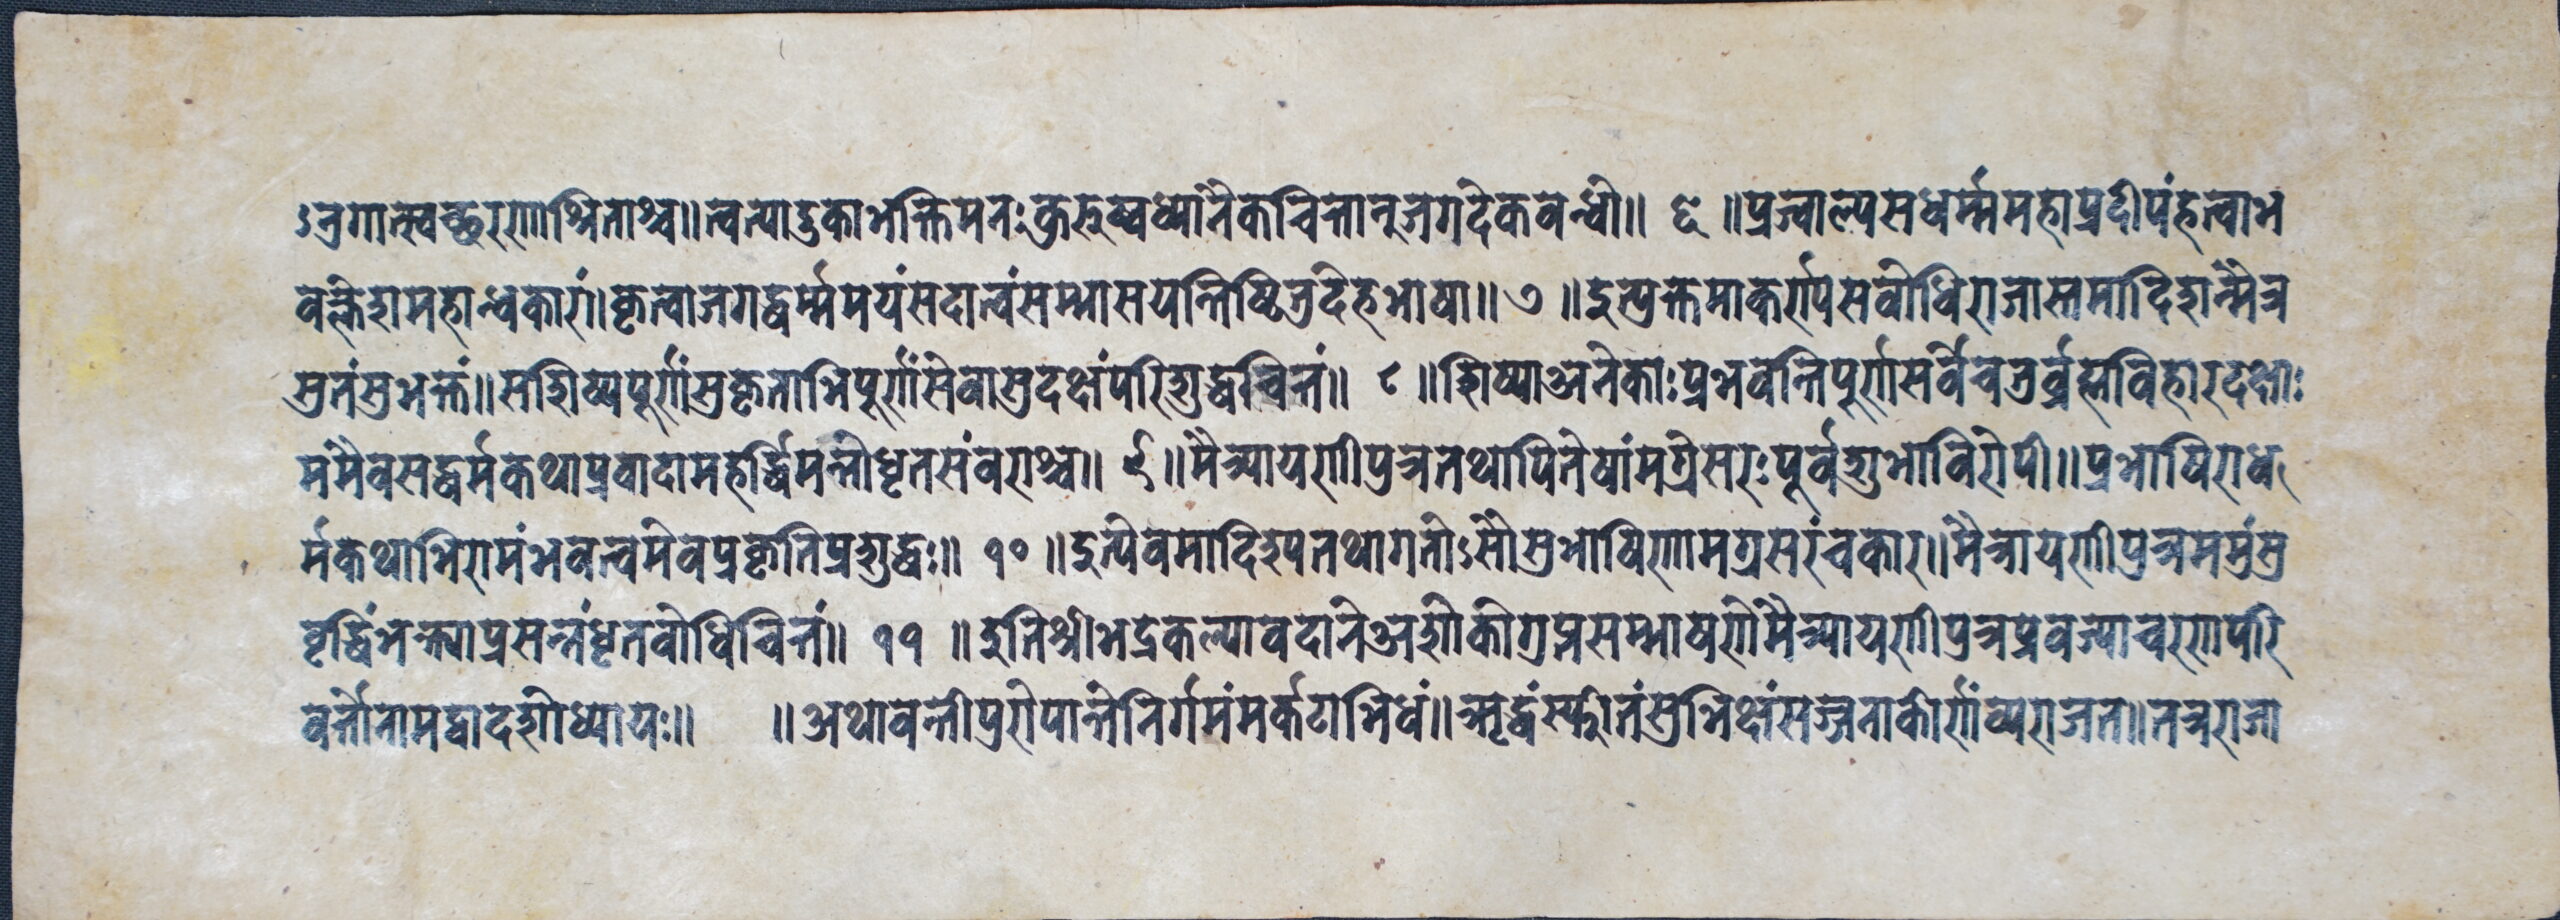 ऽनुगात्त्वच्छरणाश्रिताश्च॥त्वत्पादुकाभक्तिमनःकुरुष्वध्यानैकचित्तानुजगदेकवन्धो॥ ६ ॥प्रज्वाल्यसधर्म्ममहाप्रदीपंहत्वाभ
वक्लेशमहान्धकारां।कृत्वाजगद्धर्म्ममयंसदात्वंसम्भासयन्तिष्ठितुदेहभाषा॥ ७ ॥इत्युक्तमाकर्ण्यसवोधिराजास्तमादिशन्मैत्र
सुतंसुभक्तं॥सशिष्यपूर्णांसुकृताभिपूर्णांसेवासुदक्षंपरिशुद्धचित्तं॥ ८ ॥शिष्याअनेकाःप्रभवन्तिपूर्णासर्वेचतुर्व्रह्मविहारदक्षाः
ममैवसद्धर्मकथाप्रवादामहर्द्धिमन्तोधृतसंवराश्च॥ ९ ॥मैत्र्यायणीपुत्रतथापितेषांमग्रेसरःपूर्वशुभाविरोपी॥प्रभाषिराध
र्मकथाभिरामंभवत्वमेवप्रकृतिप्रशुद्धः॥ १० ॥इत्येवमादिश्यतथागतोऽसौसुभाषिणामग्रसरंचकार॥मैत्रायणीपुत्रममुंसु
वृद्धिंभक्त्याप्रसन्नंधृतवोधिचित्तं॥ ११ ॥इतिश्रीभद्रकल्पावदानेअशोकोगुप्तसम्भाषणेमैत्र्यायणीपुत्रप्रवज्याचरणपरि
वर्त्तोनामद्वादशोध्यायः॥ ॥अथावन्तीपुरोपान्तेनिर्गमंमर्कटाभिधं॥ऋद्धंस्फीतंसुभिक्षंसज्जनाकीर्णांव्यराजत॥तत्रराजा